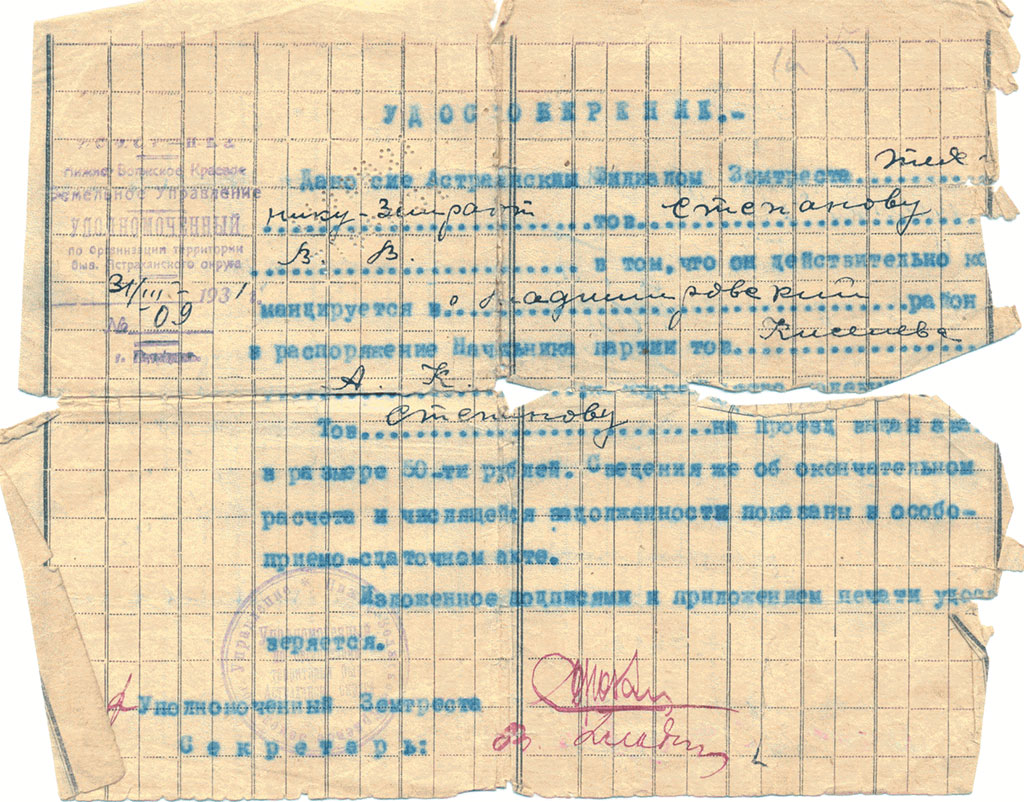 УДОСТОВЕРЕНИЕ.-
Нижне Волжское Краевое
Земельное Управление
УПОЛНОМОЧЕННЫЙ
по организации территории
быв. Астраханского округа
31/III - 1931
№ 09
г.
Дано сие Астраханским Филиалом Земтреста........ тех-
нику-Землеустр ........тов. Степанову
В. В. в том, что он действительно ко
мандируется в Владимировский район
в распоряжение Начальника партии тов. Киселева
А. К.
Тов. Степанову на проезд выдан ава
в размере 50-ти рублей. Сведения же об окончательном
расчете и числящейся задолженности показаны в особо-
приемо-сдаточном акте.
Изложенное подписями и приложением печати удос
веряется.
Уполномоченный Земтреста
Секретарь: